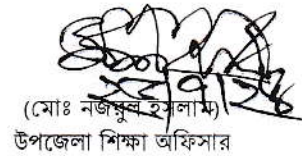 (মোঃ নজমুল ইসলাম)
উপজেলা শিক্ষা অফিসার